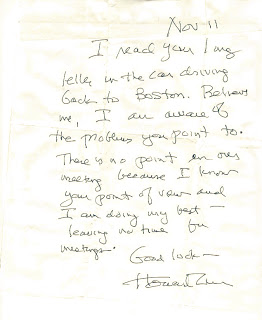 Nov 11
I read your long
letter in the car driving
back to Boston. Believe
me, I am aware of
the problems you point to.
There is no point in our
meeting because I know
your point of view and
I am doing my best —
leaving no time for
meetings.
Good luck —
Howard Zinn